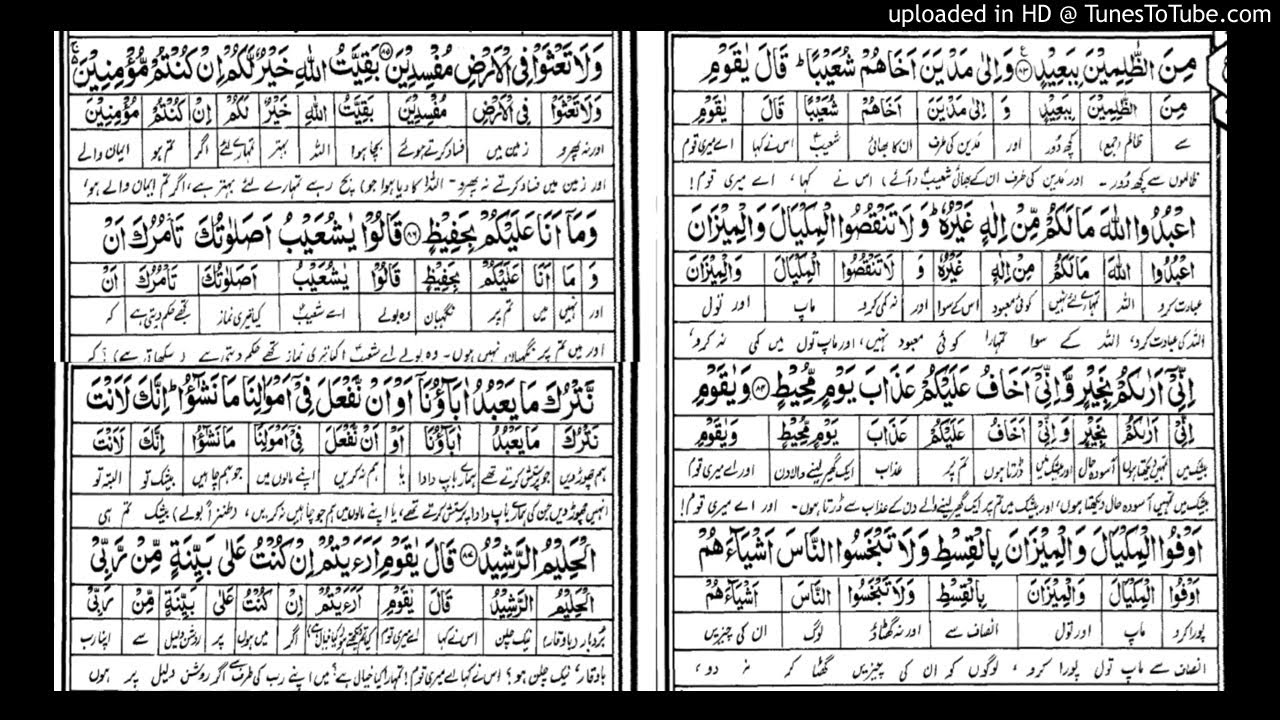 uploaded in HD @ TunesToTube.com
مِنَ الظّٰلِمِيْنَ بِبَعِيْدٍ ﴿٨٣﴾ وَاِلٰى مَدْيَنَ اَخَاهُمْ شُعَيْبًا ؕ قَالَ يٰقَوْمِ
مِنَ الظّٰلِمِيْنَ بِبَعِيْدٍ وَ اِلٰى مَدْيَنَ اَخَاهُمْ شُعَيْبًا قَالَ يٰقَوْمِ
سے ظالم (جمع) کچھ دُور اور مَدین کی طرف ان کا بھائی شعیبؑ اس نے کہا اے میری قوم
ظالموں سے کچھ دُور ۔ اور مَدین کی طرف ان کے بھائی شعیبؑ (آئے) اس نے کہا، اے میری قوم!
اعْبُدُوا اللّٰهَ مَا لَكُمْ مِّنْ اِلٰهٍ غَيْرُهٗ ؕ وَلَا تَنْقُصُوا الْمِكْيَالَ وَالْمِيْزَانَ
اعْبُدُوا اللّٰهَ مَا لَكُمْ مِنْ اِلٰهٍ غَيْرُهٗ وَ لَا تَنْقُصُوا الْمِكْيَالَ وَالْمِيْزَانَ
عبادت کرو اللہ تمہارے لئے نہیں کوئی معبود اس کے سوا اور نہ کمی کرو ماپ اور تول
اللہ کی عبادت کرو، اللہ کے سوا تمہارا کوئی معبود نہیں، اور ماپ تول میں کمی نہ کرو،
اِنِّيْۤ اَرٰىكُمْ بِخَيْرٍ وَّاِنِّيْۤ اَخَافُ عَلَيْكُمْ عَذَابَ يَوْمٍ مُّحِيْطٍ ﴿٨٤﴾ وَيٰقَوْمِ
اِنِّيْۤ اَرٰىكُمْ بِخَيْرٍ وَاِنِّيْۤ اَخَافُ عَلَيْكُمْ عَذَابَ يَوْمٍ مُّحِيْطٍ وَيٰقَوْمِ
بیشک میں تمہیں دیکھتا ہوں آسودہ حال اور بیشک میں ڈرتا ہوں تم پر عذاب ایک گھیر لینے والا دن اور اے میری قوم
بیشک میں تمہیں آسودہ حال دیکھتا ہوں، اور بیشک میں تم پر ایک گھیر لینے والے دن کے عذاب سے ڈرتا ہوں۔ اور اے میری قوم!
اَوْفُوا الْمِكْيَالَ وَالْمِيْزَانَ بِالْقِسْطِ وَلَا تَبْخَسُوا النَّاسَ اَشْيَآءَهُمْ
اَوْفُوا الْمِكْيَالَ وَالْمِيْزَانَ بِالْقِسْطِ وَلَا تَبْخَسُوا النَّاسَ اَشْيَآءَهُمْ
پورا کرو ماپ اور تول انصاف سے اور نہ گھٹاؤ لوگ ان کی چیزیں
انصاف سے ماپ تول پورا کرو، لوگوں کو ان کی چیزیں گھٹا کر نہ دو،
وَلَا تَعْثَوْا فِي الْاَرْضِ مُفْسِدِيْنَ ﴿٨٥﴾ بَقِيَّتُ اللّٰهِ خَيْرٌ لَّكُمْ اِنْ كُنْتُمْ مُّؤْمِنِيْنَ
وَلَا تَعْثَوْا فِي الْاَرْضِ مُفْسِدِيْنَ بَقِيَّتُ اللّٰهِ خَيْرٌ لَكُمْ اِنْ كُنْتُمْ مُؤْمِنِيْنَ
اور نہ پھرو زمین میں فساد کرتے ہوئے بچا ہوا اللہ بہتر تمہارے لئے اگر تم ہو ایمان والے
اور زمین میں فساد کرتے نہ پھرو۔ اللہ (کا دیا ہوا جو) بچ رہے تمہارے لئے بہتر ہے، اگر تم ایمان والے ہو،
وَمَاۤ اَنَا عَلَيْكُمْ بِحَفِيْظٍ ﴿٨٦﴾ قَالُوْا يٰشُعَيْبُ اَصَلٰوتُكَ تَاْمُرُكَ اَنْ
وَ مَا اَنَا عَلَيْكُمْ بِحَفِيْظٍ قَالُوْا يٰشُعَيْبُ اَصَلٰوتُكَ تَاْمُرُكَ اَنْ
اور نہیں میں تم پر نگہبان وہ بولے اے شعیبؑ کیا تیری نماز تجھے حکم دیتی ہے کہ
اور میں تم پر نگہبان نہیں ہوں۔ وہ بولے اے شعیبؑ! کیا تیری نماز تجھے حکم دیتی ہے کہ
نَّتْرُكَ مَا يَعْبُدُ اٰبَآؤُنَاۤ اَوْ اَنْ نَّفْعَلَ فِيْۤ اَمْوَالِنَا مَا نَشٰٓؤُا ؕ اِنَّكَ لَاَنْتَ
نَتْرُكَ مَا يَعْبُدُ اٰبَآؤُنَا اَوْ اَنْ نَفْعَلَ فِيْۤ اَمْوَالِنَا مَا نَشٰٓؤُا اِنَّكَ لَاَنْتَ
ہم چھوڑ دیں جو پرستش کرتے تھے ہمارے باپ دادا یا ہم نہ کریں اپنے مالوں میں جو ہم چاہیں بیشک تو البتہ تو
انہیں چھوڑ دیں جن کی ہمارے باپ دادا پرستش کرتے تھے، یا اپنے مالوں میں ہم جو چاہیں نہ کریں، (طنزاً بولے) بیشک تم ہی
الْحَلِيْمُ الرَّشِيْدُ ﴿٨٧﴾ قَالَ يٰقَوْمِ اَرَءَيْتُمْ اِنْ كُنْتُ عَلٰى بَيِّنَةٍ مِّنْ رَّبِّيْ
الْحَلِيْمُ الرَّشِيْدُ قَالَ يٰقَوْمِ اَرَءَيْتُمْ اِنْ كُنْتُ عَلٰى بَيِّنَةٍ مِّنْ رَبِّيْ
بُردبار (باوقار) نیک چلن اس نے کہا اے میری قوم اگر میں ہوں پر روشن دلیل سے اپنا رب
باوقار، نیک چلن ہو؟ اس نے کہا اے میری قوم! تمہارا کیا خیال ہے؟ میں اپنے رب کی طرف سے اگر روشن دلیل پر ہوں